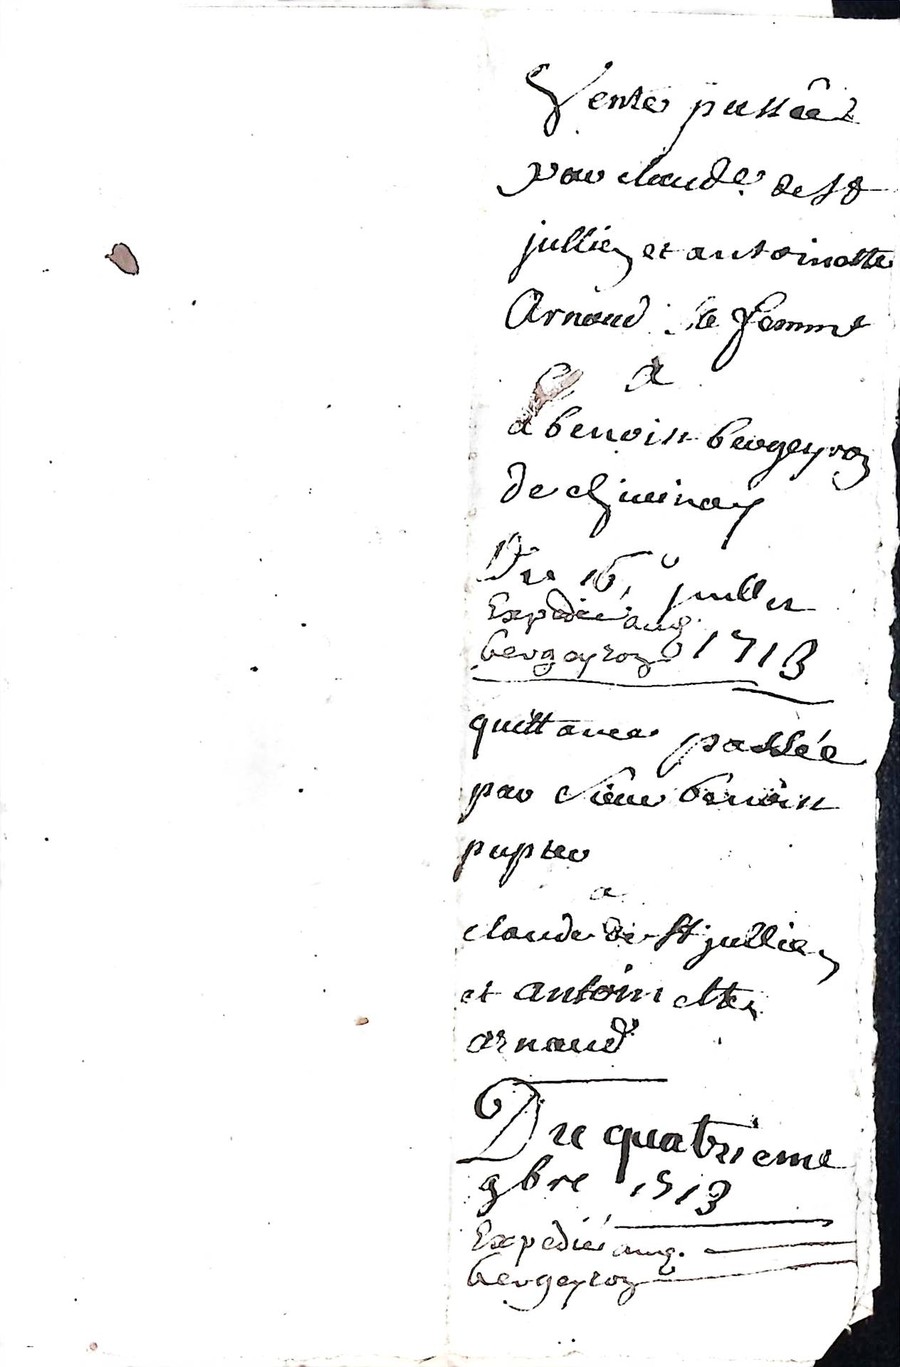 Vente passée
par claude de St
jullien et antoinette
Arnaud sa femme
a
a benoin bergeyron
de chivinay
Du 16e juillet
Expédié aud.
bergeyron 1713
quittance passée
par Sieur benoin
pupier
a
claude de St jullien
et antoinette
arnaud
Du quatrieme
9bre 1713
Expédié aud.
bergeyron